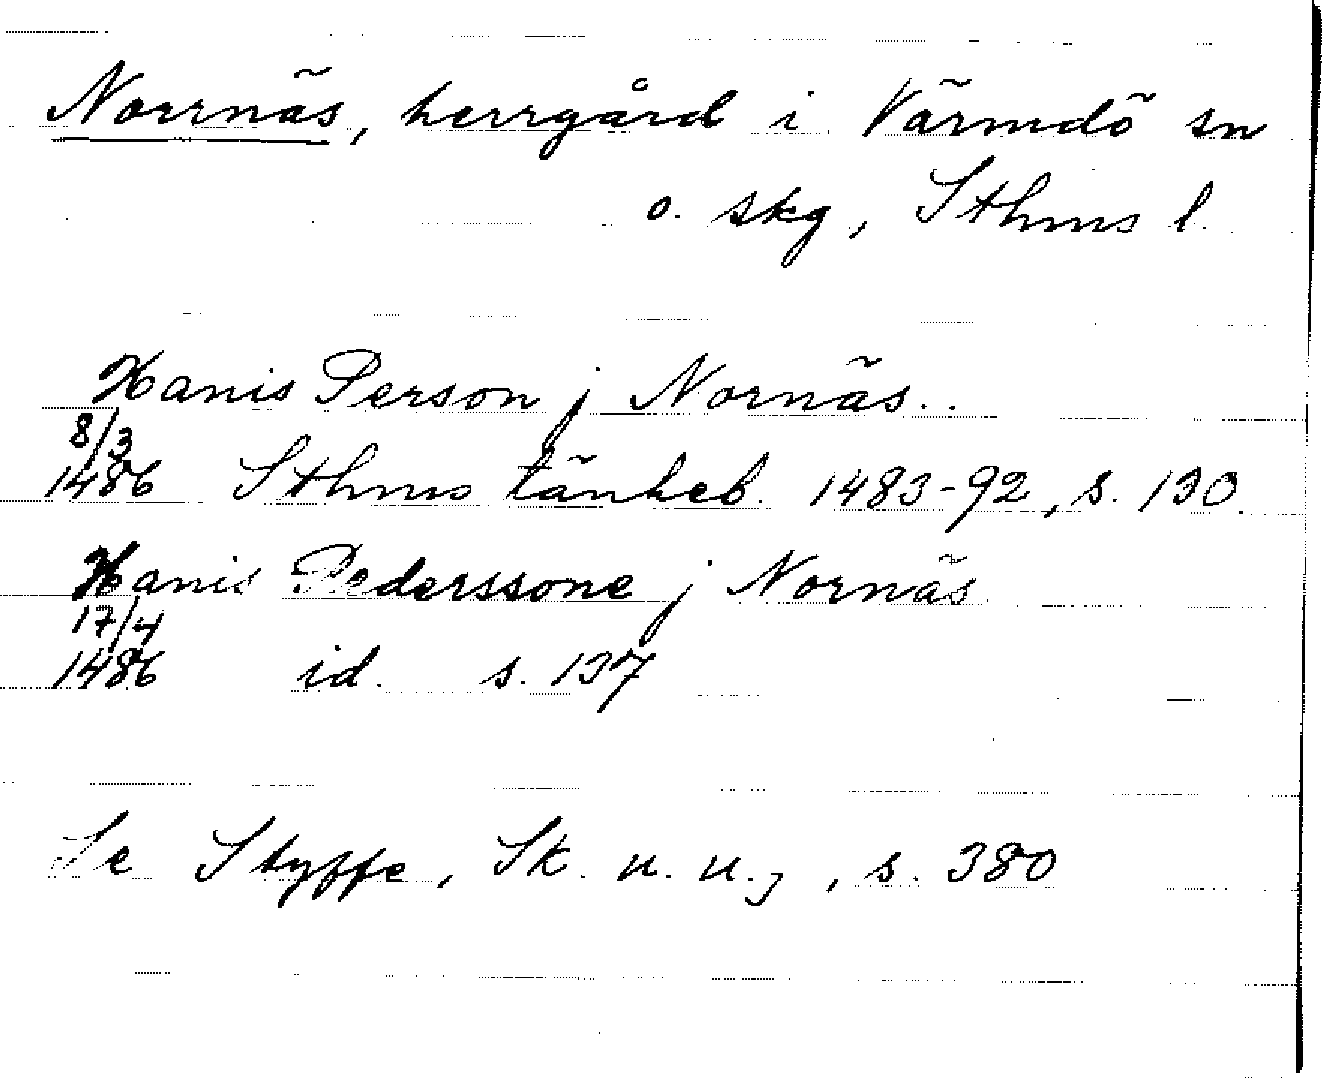 Norrnäs, herrgård i Värmdö sn
o. skg, Sthms l.
Hanis Person j Nornäs..
8/3
1486 Sthms tänkeb. 1483-92, s. 130.
Hanis Pederssone j Nornäs
17/4
1486 id. s. 137
Se Styffe, Sk. u. u., s. 380